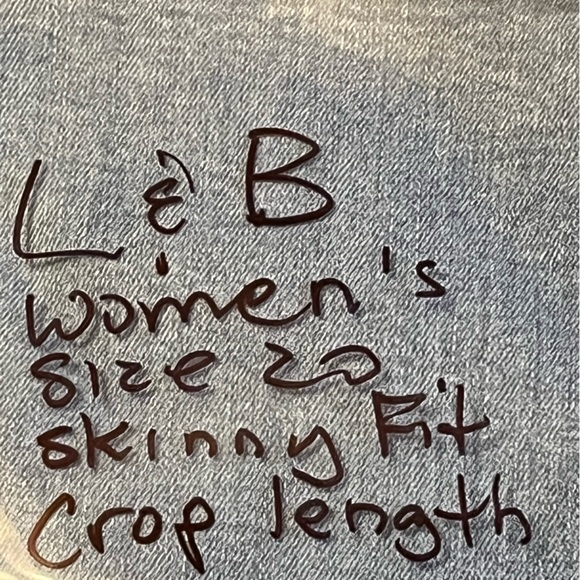 L & B
women's
size 20
skinny Fit
Crop length